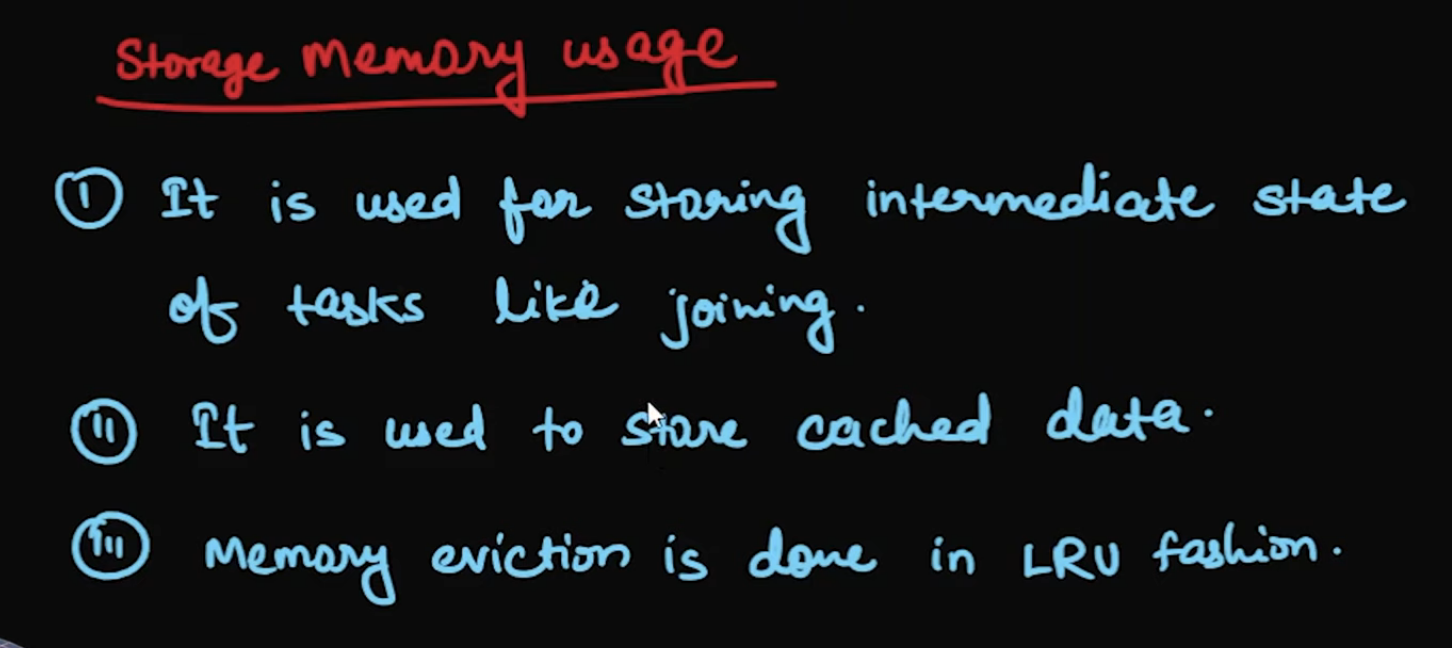 Storage Memory usage
(I) It is used for storing intermediate state
of tasks like joining.
(II) It is used to store cached data.
(III) Memory eviction is done in LRU fashion.